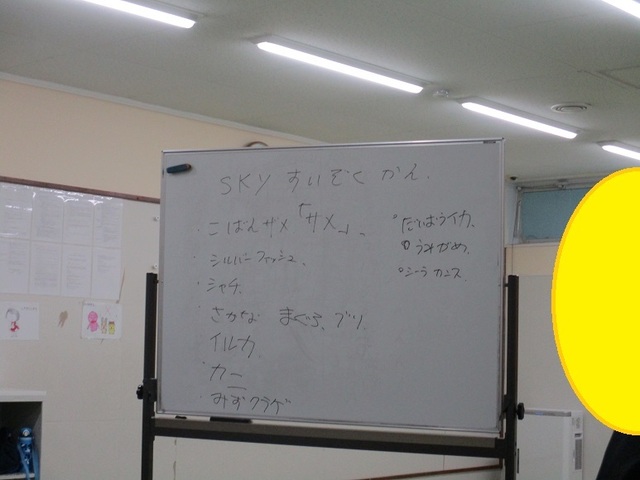 SKY すいぞくかん.
・こばんザメ「サメ」、
・シルバーフィッシュ、
・シャチ.
・さかな まぐろ、ブリ.
・イルカ
・カニ
・みずクラゲ
・だいおうイカ.
・うみがめ.
・シーラカンス